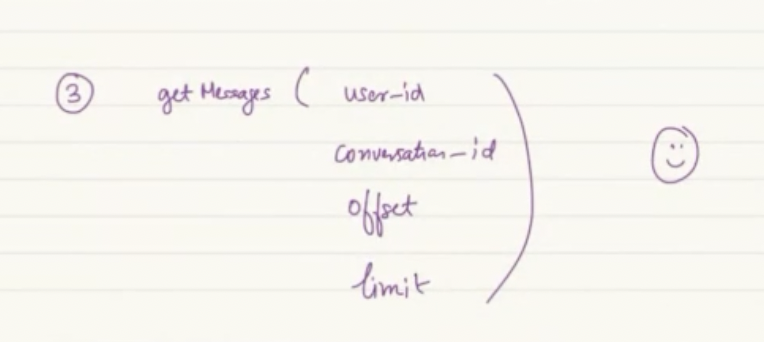 ③ get Messages ( user-id
conversation-id
offset
limit )